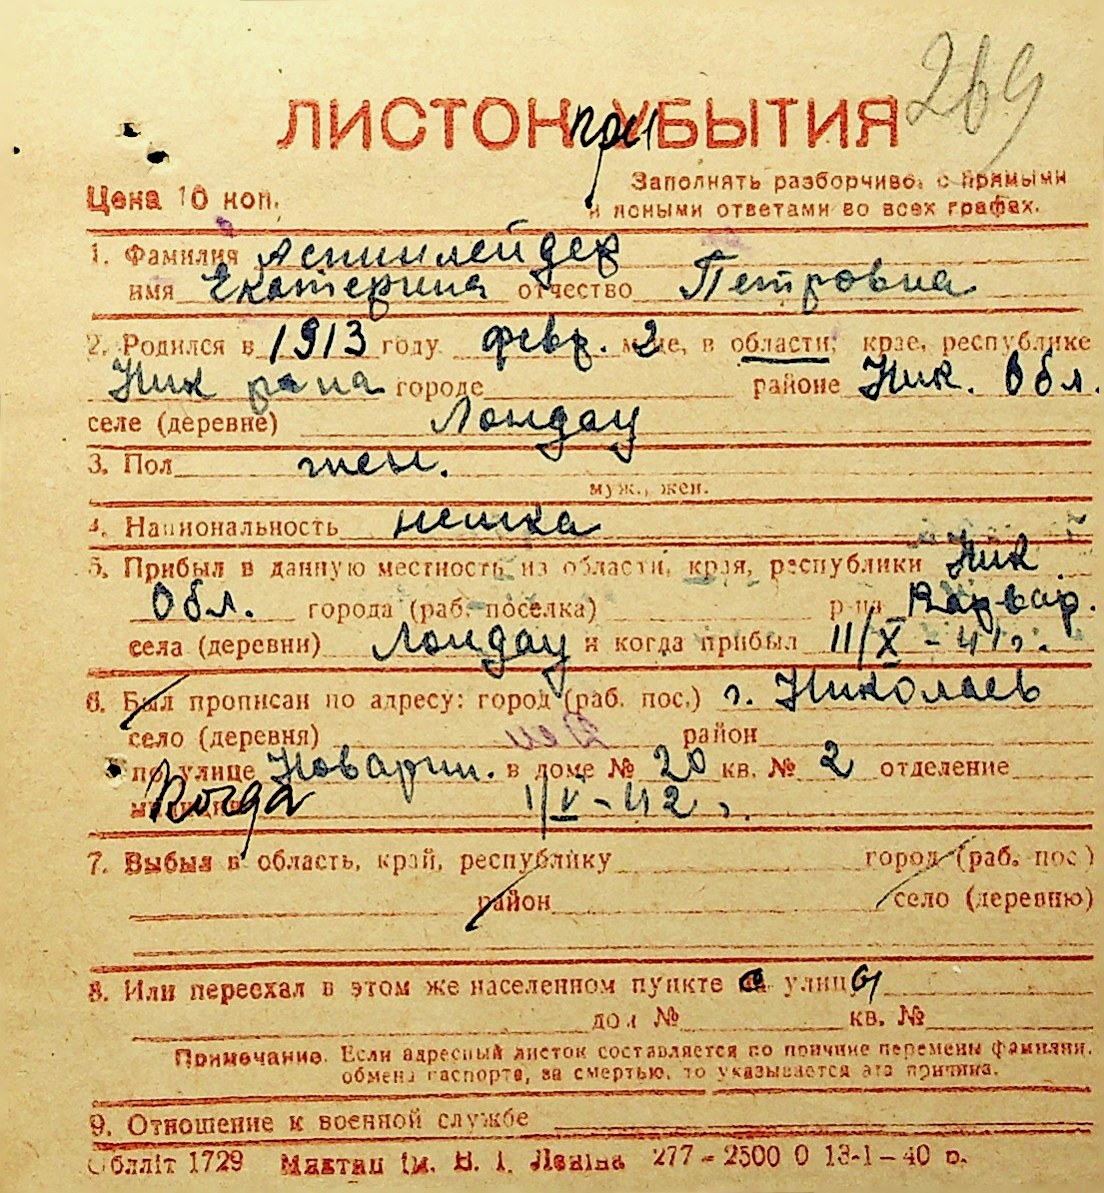 269
ЛИСТОК при УБЫТИЯ
Цена 10 коп.
Заполнять разборчиво, с прямыми
и ясными ответами во всех графах.
1. Фамилия Аспинлейдер
имя Екатерина отчество Петровна
2. Родился в 1913 году февр. 2 м-це, в области, крае, республике
Ник р-на городе районе Ник. Обл.
селе (деревне) Лондау
3. Пол жен.
муж., жен.
4. Национальность немка
5. Прибыл в данную местность из области, края, республики Ник
Обл. города (раб. поселка) р-на Варвар.
села (деревни) Лондау и когда прибыл 11/X - 41 г.
6. Был прописан по адресу: город (раб. пос.) г. Николаев
село (деревня) район
по улице Новарин. в доме № 20 кв. № 2 отделение
милиции Когда 1/V - 42 г.
7. Выбыл в область, край, республику город (раб. пос)
район село (деревню)
8. Или переехал в этом же населенном пункте с улицы
дом № кв. №
Примечание. Если адресный листок составляется по причине перемены фамилии,
обмена паспорта, за смертью, то указывается эта причина.
9. Отношение к военной службе
Облліт 1729 ім. В. І. Леніна 277 - 2500 0 13-1-40 р.